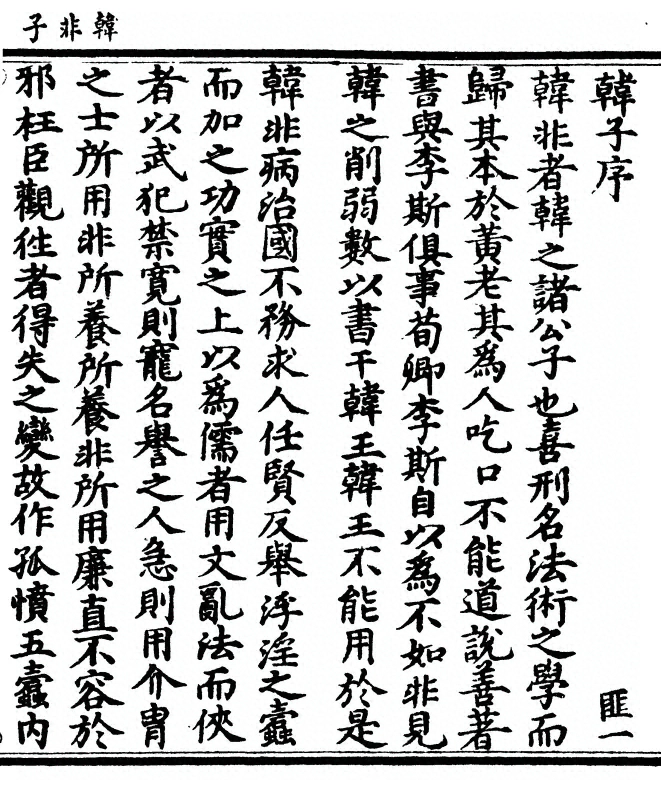 韓非子
韓子序 匪一
韓非者韓之諸公子也喜刑名法術之學而
歸其本於黃老其為人吃口不能道說善著
書與李斯俱事荀卿李斯自以為不如非見
韓之削弱數以書干韓王韓王不能用於是
韓非病治國不務求人任賢反舉浮淫之蠹
而加之功實之上以為儒者用文亂法而俠
者以武犯禁寬則寵名譽之人急則用介胄
之士所用非所養所養非所用廉直不容於
邪枉臣觀徃者得失之變故作孤憤五蠹內